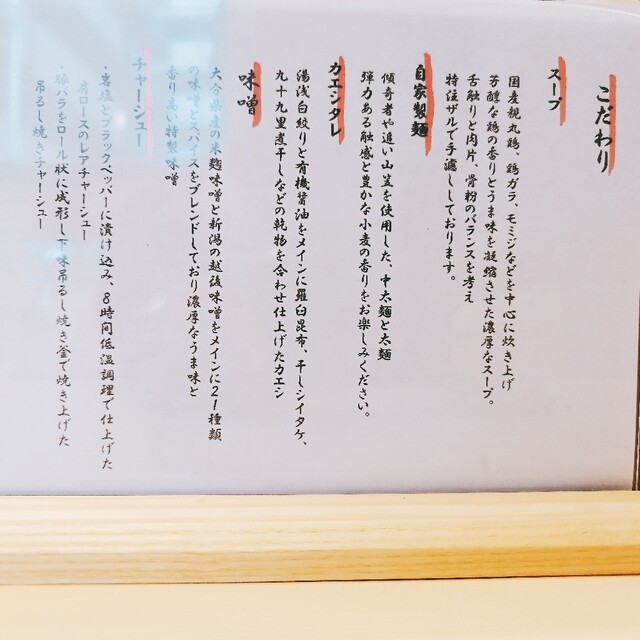 こだわり
スープ
国産親丸鶏、鶏ガラ、モミジなどを中心に炊き上げ
芳醇な鶏の香りとうま味を凝縮させた濃厚なスープ。
舌触りと肉片、骨粉のバランスを考え
特注ザルで手濾ししております。
自家製麺
傾奇者や追い山笠を使用した、中太麺と太麺
弾力ある触感と豊かな小麦の香りをお楽しみください。
カエシタレ
湯浅白絞りと有機醤油をメインに羅臼昆布、干しシイタケ、
九十九里煮干しなどの乾物を合わせ仕上げたカエシ
味噌
大分県産の米麹味噌と新潟の越後味噌をメインに21種類
の味噌とスパイスをブレンドしており濃厚なうま味と
香り高い特製味噌
チャーシュー
・岩塩とブラックペッパーに漬け込み、8時間低温調理で仕上げた
肩ロースのレアチャーシュー
・豚バラをロール状に成形し下味吊るし焼き釜で焼き上げた
吊るし焼きチャーシュー